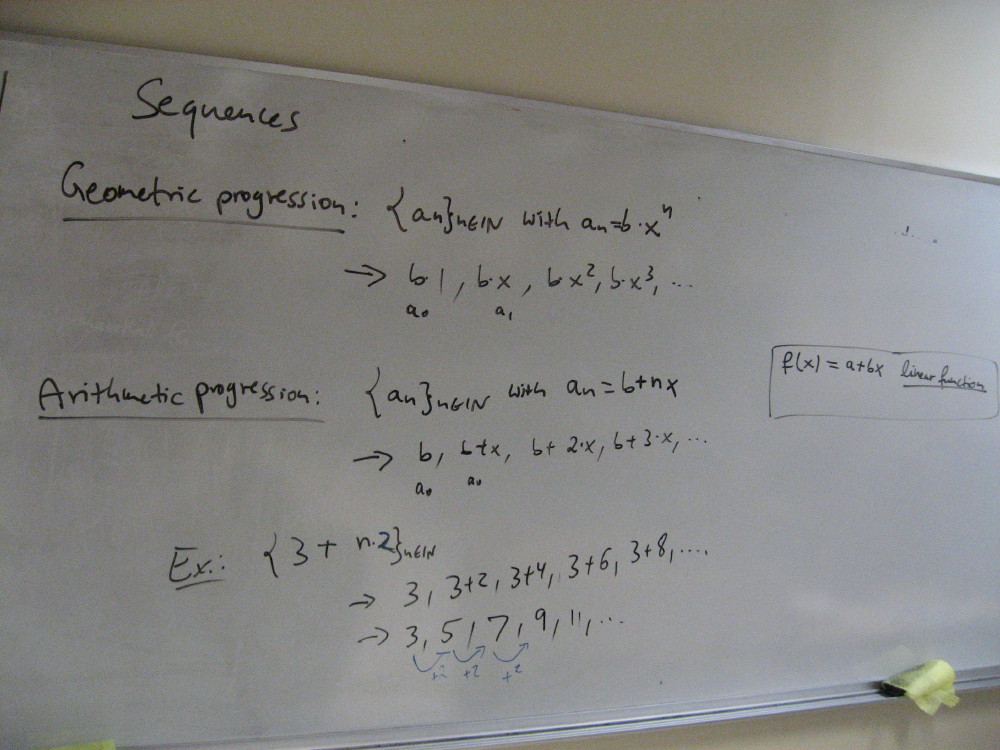 Sequences
Geometric progression: {an}n∈IN with an=b·xⁿ
→ b·1, b·x, b·x², b·x³, ...
a₀ a₁
f(x) = a+bx linear function
Arithmetic progression: {an}n∈IN with an = b+nx
→ b, b+x, b+ 2·x, b+3·x, ...
a₀ a₀
Ex.: {3 + n·2}n∈IN
→ 3, 3+2, 3+4, 3+6, 3+8, ....
→ 3, 5, 7, 9, 11, ...
+2 +2 +2